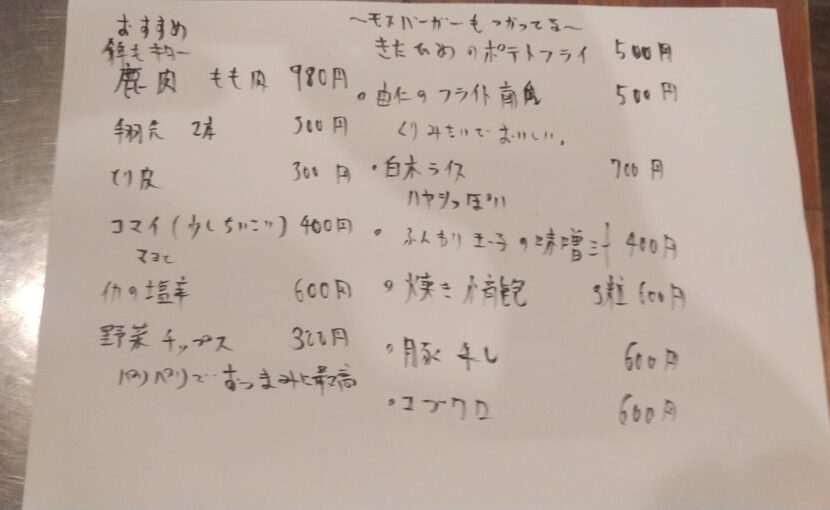 おすすめ
鹿肉 もも肉 980円
2本 300円
とり皮 300円
コマイ(少しちいさい) 400円
マヨと
イカの塩辛 600円
野菜チップス 300円
パリパリで…おつまみに最高
~モスバーガーもつかってる~
きたひめのポテトフライ 500円
・由仁のフライト 500円
くりみたいでおいしい。
・白木ライス 700円
ハヤシっぽい
・ふんわり玉子の味噌汁 400円
・焼き 3粒 600円
・豚串し 600円
・コブクロ 600円